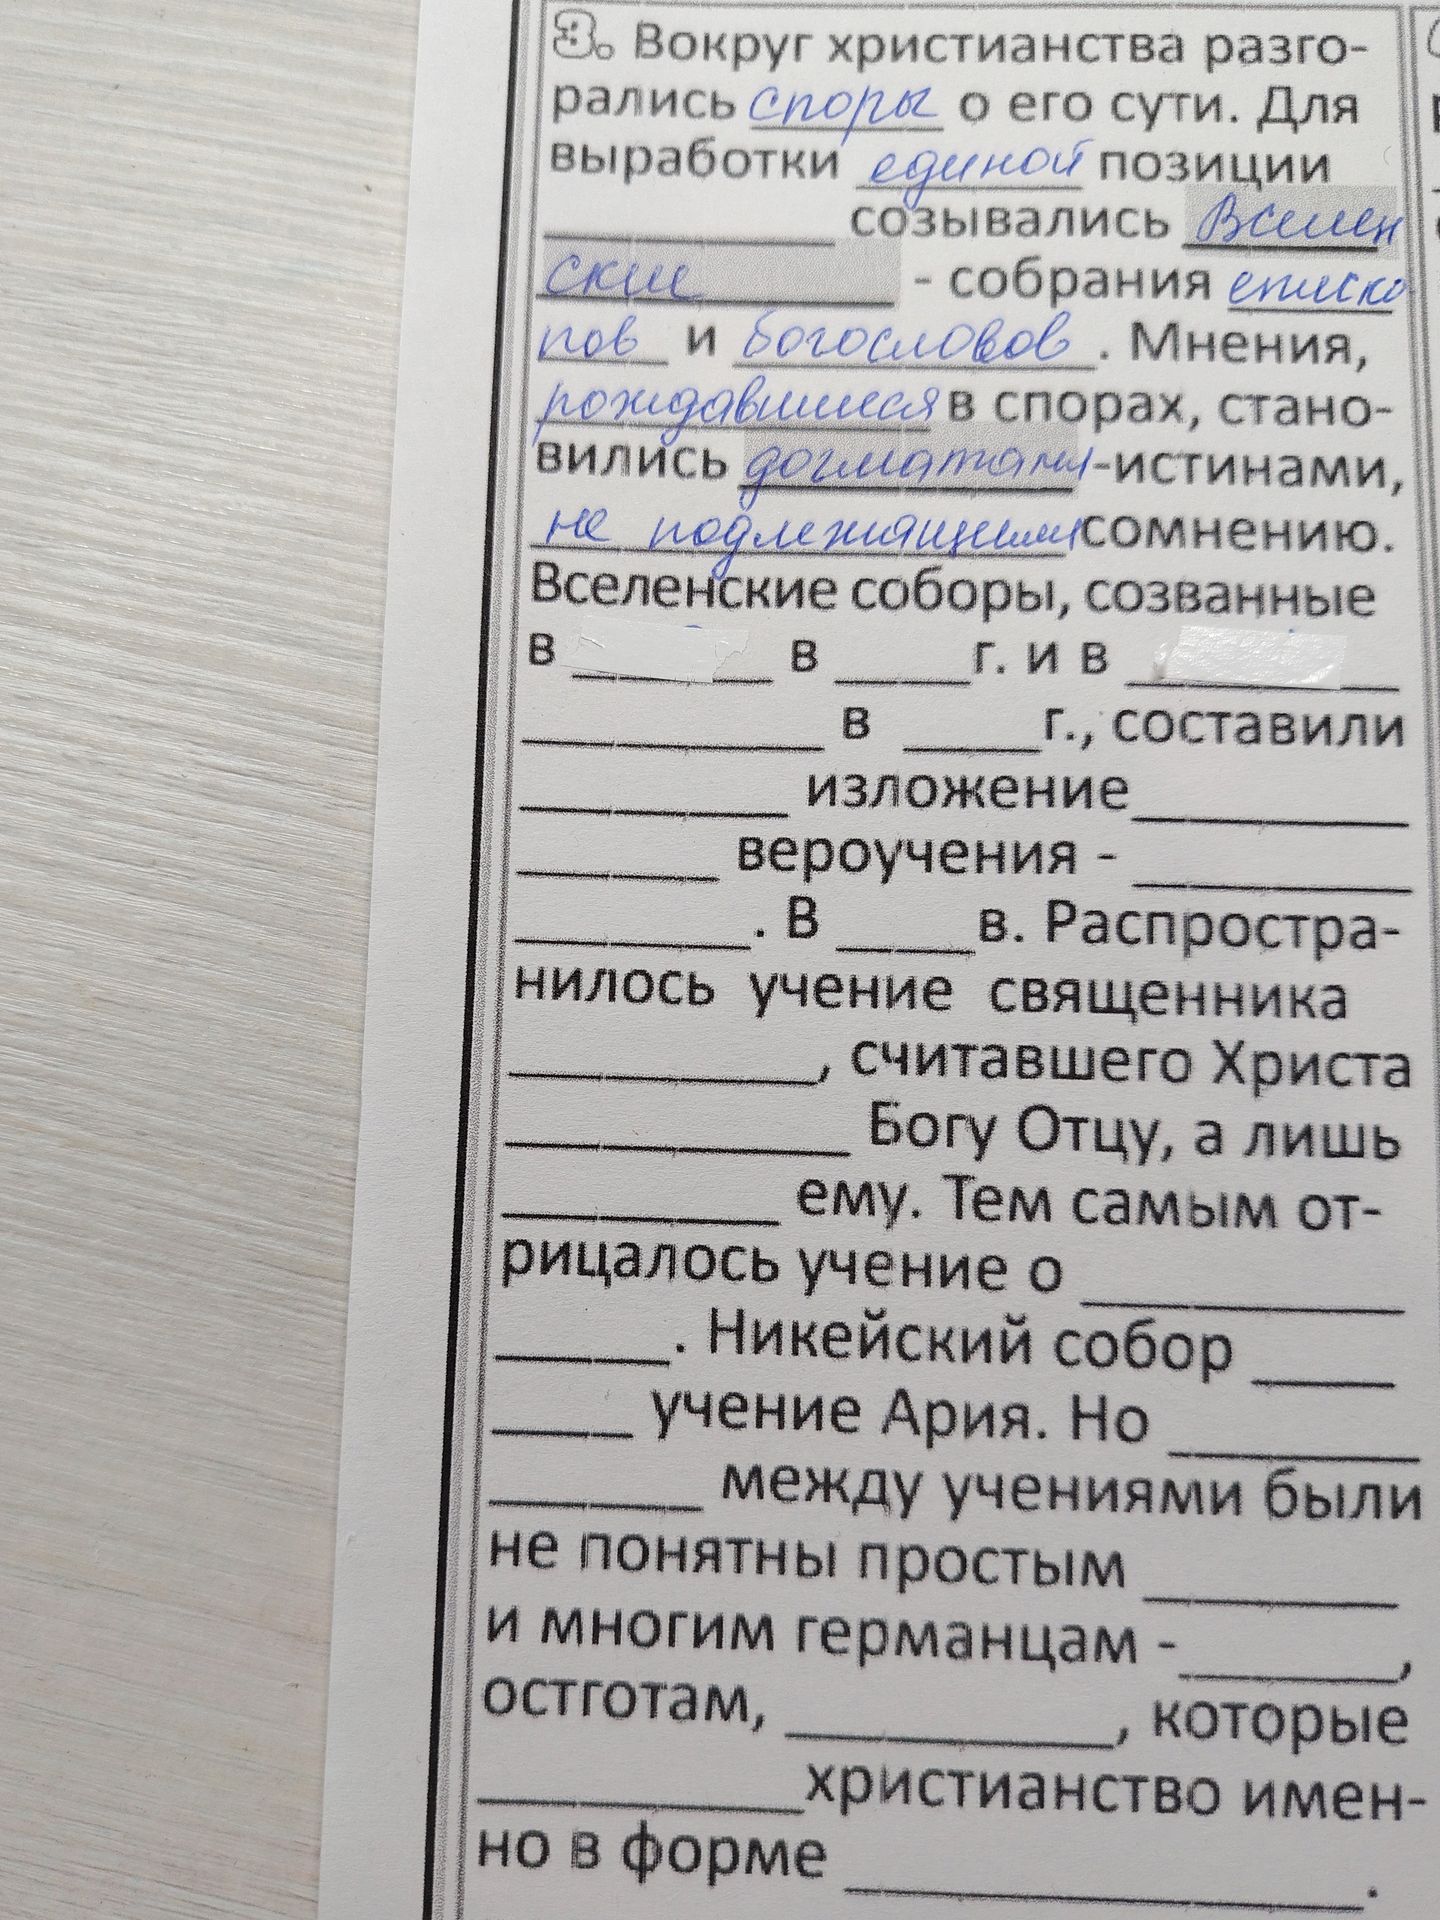 3. Вокруг христианства разго-
рались споры о его сути. Для
выработки единой позиции
____________ созывались Вселен
ские ________ - собрания еписко
пов и богословов. Мнения,
рождавшиеся в спорах, стано-
вились догматами-истинами,
не подлежащими сомнению.
Вселенские соборы, созванные
в ________ в _____ г. и в __________
____________ в _____ г., составили
__________ изложение __________
________ вероучения - __________
_________. В _____ в. Распростра-
нилось учение священника
____________, считавшего Христа
_____________ Богу Отцу, а лишь
__________ ему. Тем самым от-
рицалось учение о ____________
_______. Никейский собор _____
_____ учение Ария. Но _________
________ между учениями были
не понятны простым _________
и многим германцам - ________,
остготам, ____________, которые
____________ христианство имен-
но в форме ___________________.